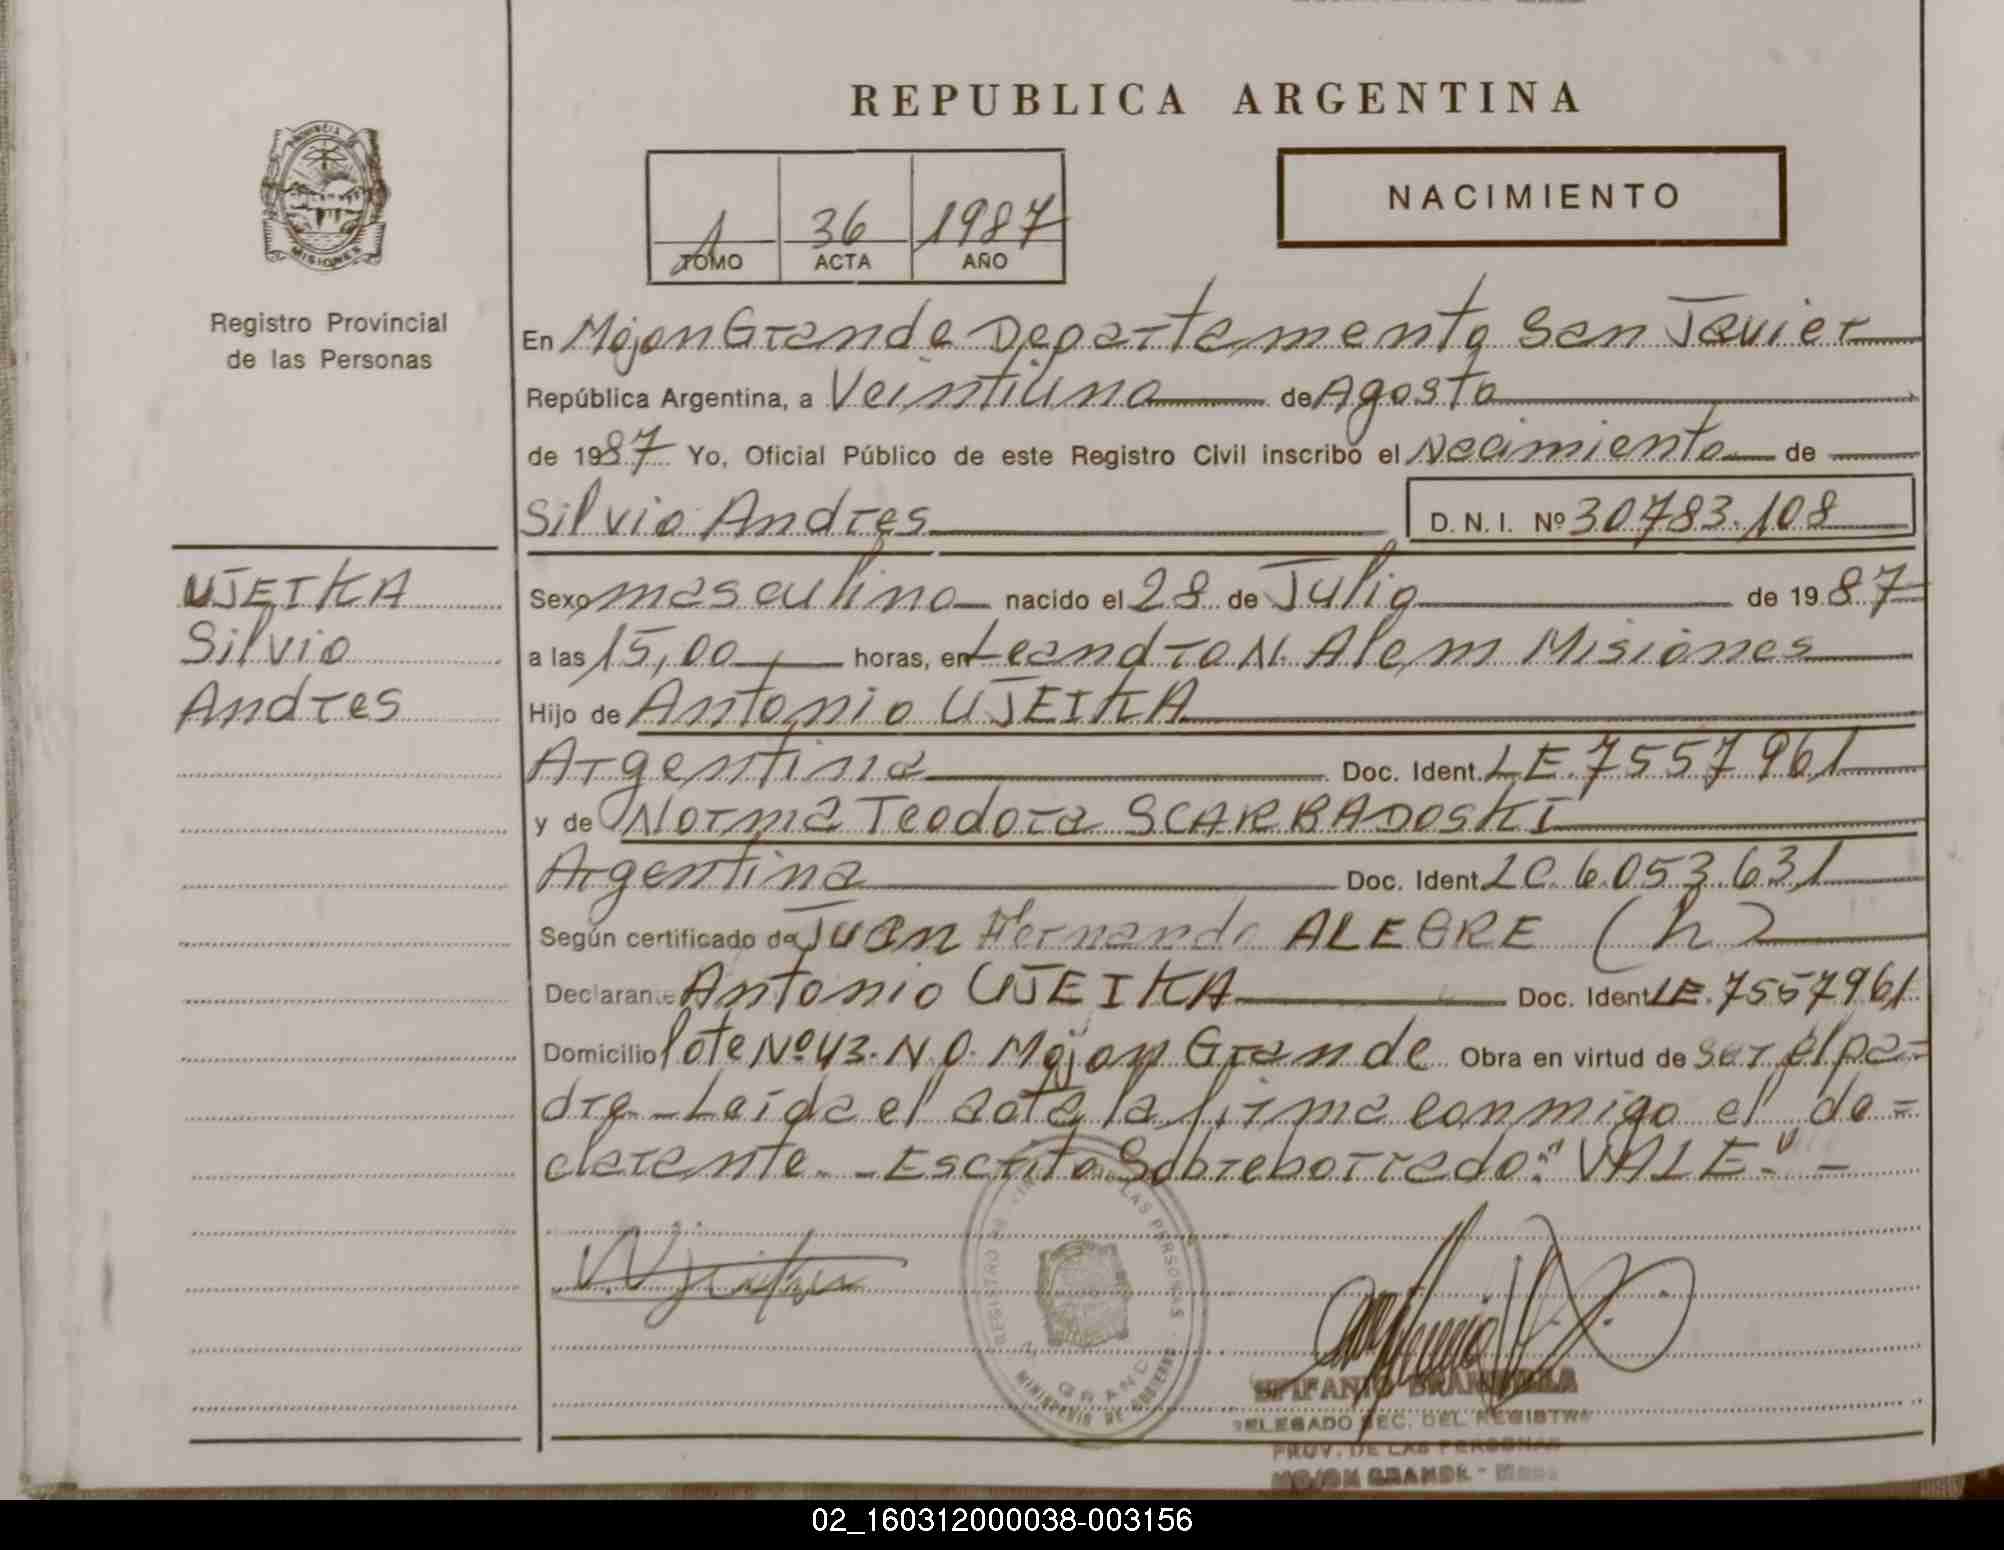 REPUBLICA ARGENTINA
PROVINCIA
MISIONES
Registro Provincial
de las Personas
1 36 1987
TOMO ACTA AÑO
NACIMIENTO
En Mojon Grande Departamento San Javier
República Argentina, a Veintiuno de Agosto
de 1987 Yo, Oficial Público de este Registro Civil inscribo el Nacimiento de
Silvio Andres D. N. I. Nº 30783.108
UJEIKA
Silvio
Andres
Sexo masculino nacido el 28 de Julio de 1987
a las 15,00 horas, en Leandro N. Alem Misiones
Hijo de Antonio UJEIKA
Argentina Doc. Ident. LE. 7557961
y de Norma Teodora SCARBADOSKI
Argentina Doc. Ident. LC 6.053.631
Según certificado de Juan Hernando ALEGRE (h)
Declarante Antonio UJEIKA Doc. Ident. LE. 7557961
Domicilio lote Nº 43. N.O. Mojon Grande Obra en virtud de ser el pa-
dre - Leída el acta la firma conmigo el de=
clarente. - Escrito Sobreborrado: "VALE." -
REGISTRO LAS PERSONAS
M. GRANDE
MINISTERIO DE GOBIERNO
EPIFANIO
DELEGADO SEC. DEL REGISTRO
PROV. DE LAS PERSONAS
MOJON GRANDE - Mnes
02_160312000038-003156